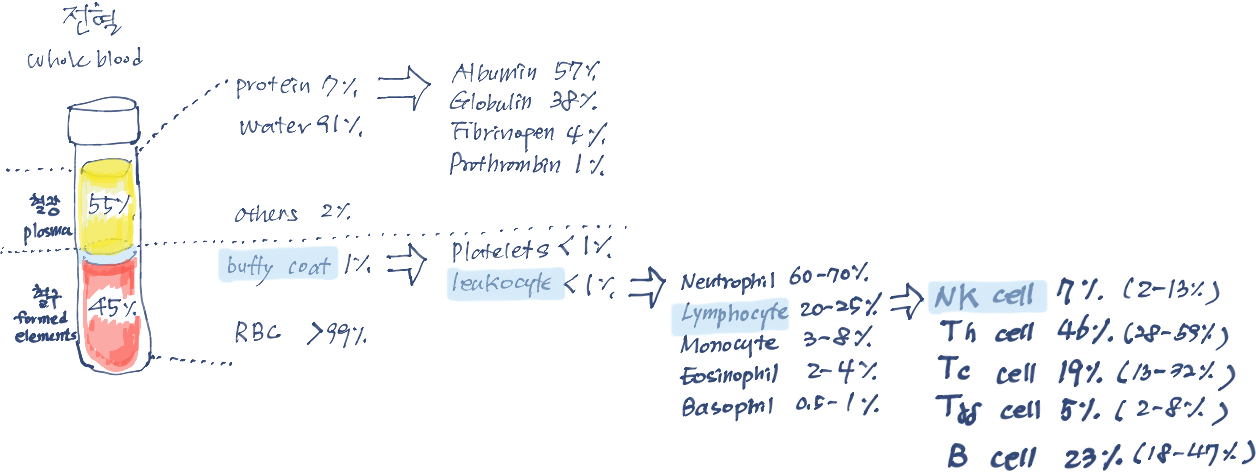 전혈
whole blood
protein 7%
water 91%
others 2%
Albumin 57%
Globulin 38%
Fibrinogen 4%
Prothrombin 1%
55%
혈장
plasma
buffy coat 1%
RBC >99%
45%
혈구
formed
elements
Platelets <1%
leukocyte <1%
Neutrophil 60-70%
Lymphocyte 20-25%
Monocyte 3-8%
Eosinophil 2-4%
Basophil 0.5-1%
NK cell 7% (2-13%)
Th cell 46% (28-59%)
Tc cell 19% (13-32%)
Tγδ cell 5% (2-8%)
B cell 23% (18-47%)